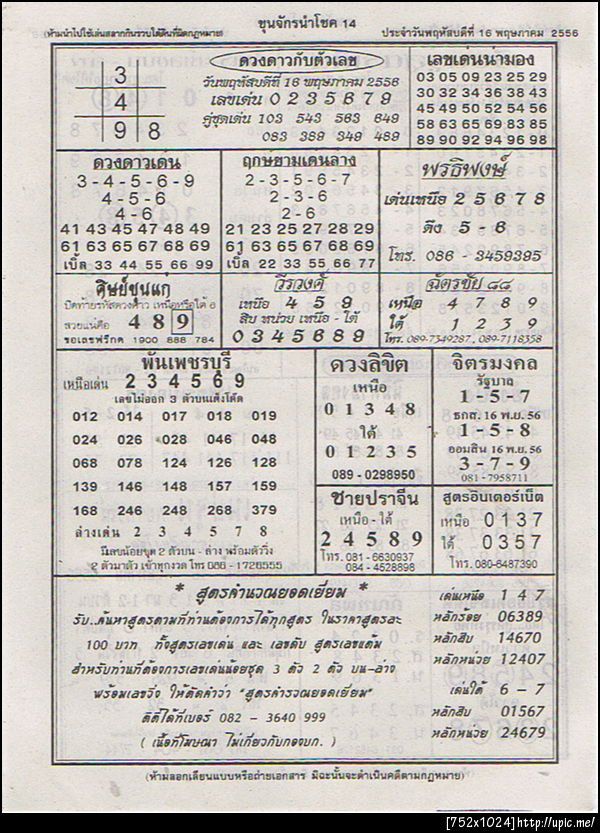 ขุนจักรนำโชค 14
(ห้ามนำไปใช้เล่นสลากกินรวบได้คืนที่ผิดกฎหมาย)
ประจำวันพฤหัสบดีที่ 16 พฤษภาคม 2556
3
4
9 8
ดวงดาวกับตัวเลข
วันพฤหัสบดีที่ 16 พฤษภาคม 2556
เลขเด่น 0 2 3 5 6 7 9
คู่ชุดเด่น 103 543 563 649
083 389 349 469
เลขเด่นน่ามอง
03 05 09 23 25 29
30 32 34 36 38 43
45 49 50 52 54 56
58 63 65 69 83 85
89 90 92 94 96 98
ดวงดาวเด่น
3-4-5-6-9
4-5-6
4-6
41 43 45 47 48 49
61 63 65 67 68 69
เบิ้ล 33 44 55 66 99
ฤกษ์ยามเด่นล่าง
2-3-5-6-7
2-3-6
2-6
21 23 25 27 28 29
61 63 65 67 68 69
เบิ้ล 22 33 55 66 77
พรธิพงษ์
เด่นเหนือ 2 5 6 7 8
ดึง 5 - 6
โทร. 086 - 3459395
ศิษย์ขุนแก่
ปิดท้ายรหัสดวงดาว เหนือหรือใต้
สวยแน่คือ 4 8 9
ขอเลขฟรีกด 1900 888 784
วีรวงค์
เหนือ 4 5 9
สิบ หน่วย เหนือ - ใต้
0 3 4 5 6 8 9
ฉัตรชัย ๘๘
เหนือ 4 7 8 9
ใต้ 1 2 3 9
โทร. 089-7349287, 089-7118358
พันเพชรบุรี
เหนือเด่น 2 3 4 5 6 9
เลขไม่ออก 3 ตัวบนเต็งโต๊ด
012 014 017 018 019
024 026 028 046 048
068 078 124 126 128
139 146 148 157 159
168 246 248 268 379
ล่างเด่น 2 3 4 5 7 8
มีเลขน้อยชุด 2 ตัวบน - ล่าง พร้อมตัววิ่ง
2 ตัวมาตัว เข้าทุกงวด โทร 086 - 1726555
ดวงลิขิต
เหนือ
0 1 3 4 8
ใต้
0 1 2 3 5
089-0298950
จิตรมงคล
รัฐบาล
1-5-7
ธกส. 16 พ.ย. 56
1-5-8
ออมสิน 16 พ.ย. 56
3-7-9
081-7958711
ชายปราจีน
เหนือ - ใต้
2 4 5 8 9
โทร. 081-6630937
084-4528898
สูตรอินเตอร์เน็ต
เหนือ 0137
ใต้ 0357
โทร.080-6487390
* สูตรคำนวณยอดเยี่ยม *
รับ..ค้นหาสูตรตามที่ท่านต้องการได้ทุกสูตร ในราคาสูตรละ
100 บาท ทั้งสูตรเลขเด่น และ เลขดับ สูตรเลขแต้ม
สำหรับท่านที่ต้องการเลขเด่นน้อยชุด 3 ตัว 2 ตัว บน-ล่าง
พร้อมเลขวิ่ง ให้ตัดคำว่า "สูตรคำรวณยอดเยี่ยม"
ติดต่อได้ที่เบอร์ 082 - 3640 999
( เนื้อที่โฆษณา ไม่เกี่ยวกับกองบก. )
เด่นเหนือ 1 4 7
หลักร้อย 06389
หลักสิบ 14670
หลักหน่วย 12407
เด่นใต้ 6 - 7
หลักสิบ 01567
หลักหน่วย 24679
(ห้ามลอกเลียนแบบหรือถ่ายเอกสาร มิฉะนั้นจะดำเนินคดีตามกฎหมาย)
[752x1024]http://upic.me/